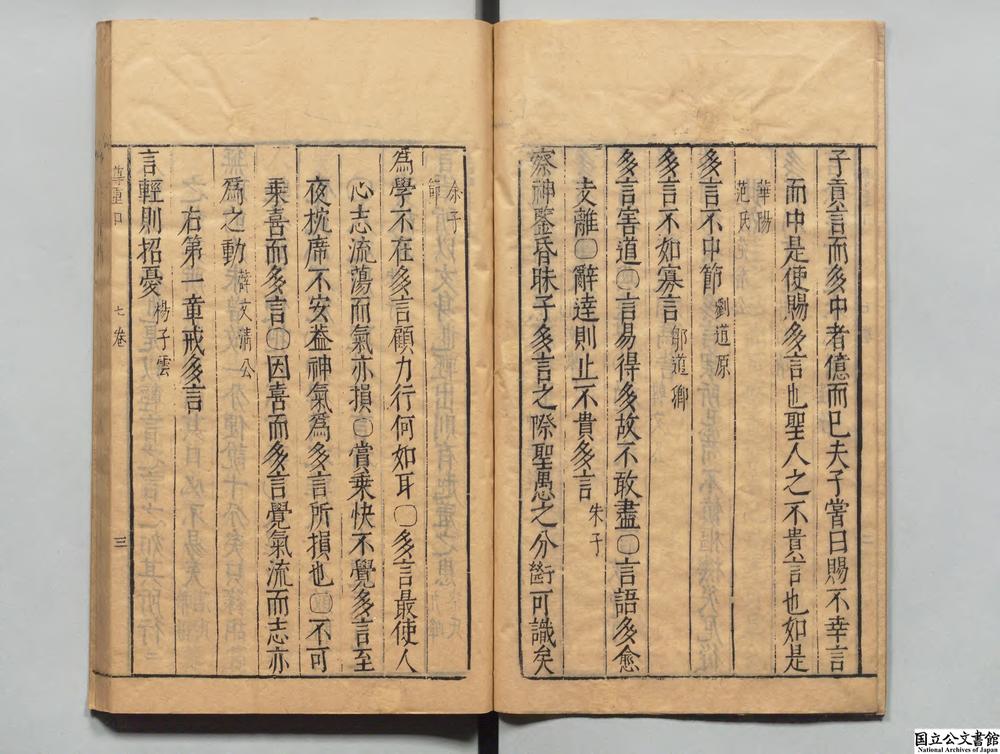 子貢言而多中者億而已夫子嘗曰賜不幸言
而中是使賜多言也聖人之不貴言也如是
華陽
范氏
多言不中節劉道原
多言不如寡言鄒道卿
多言害道〇言易得多故不敢盡〇言語多愈
支離〇辭達則止不貴多言朱子
察神鑒昏昧于多言之際聖愚之分斷可識矣
余子
節
為學不在多言顧力行何如耳〇多言最使人
心志流蕩而氣亦損〇嘗乘快不覺多言至
夜枕席不安蓋神氣為多言所損也〇不可
乘喜而多言〇因喜而多言覺氣流而志亦
為之動薛文清公
右第一章戒多言
言輕則招憂楊子雲
七卷
三
国立公文書館
National Archives of Japan